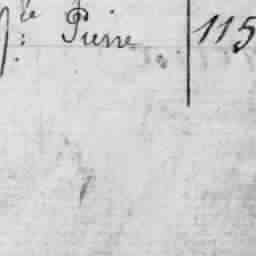 le Pierre 115